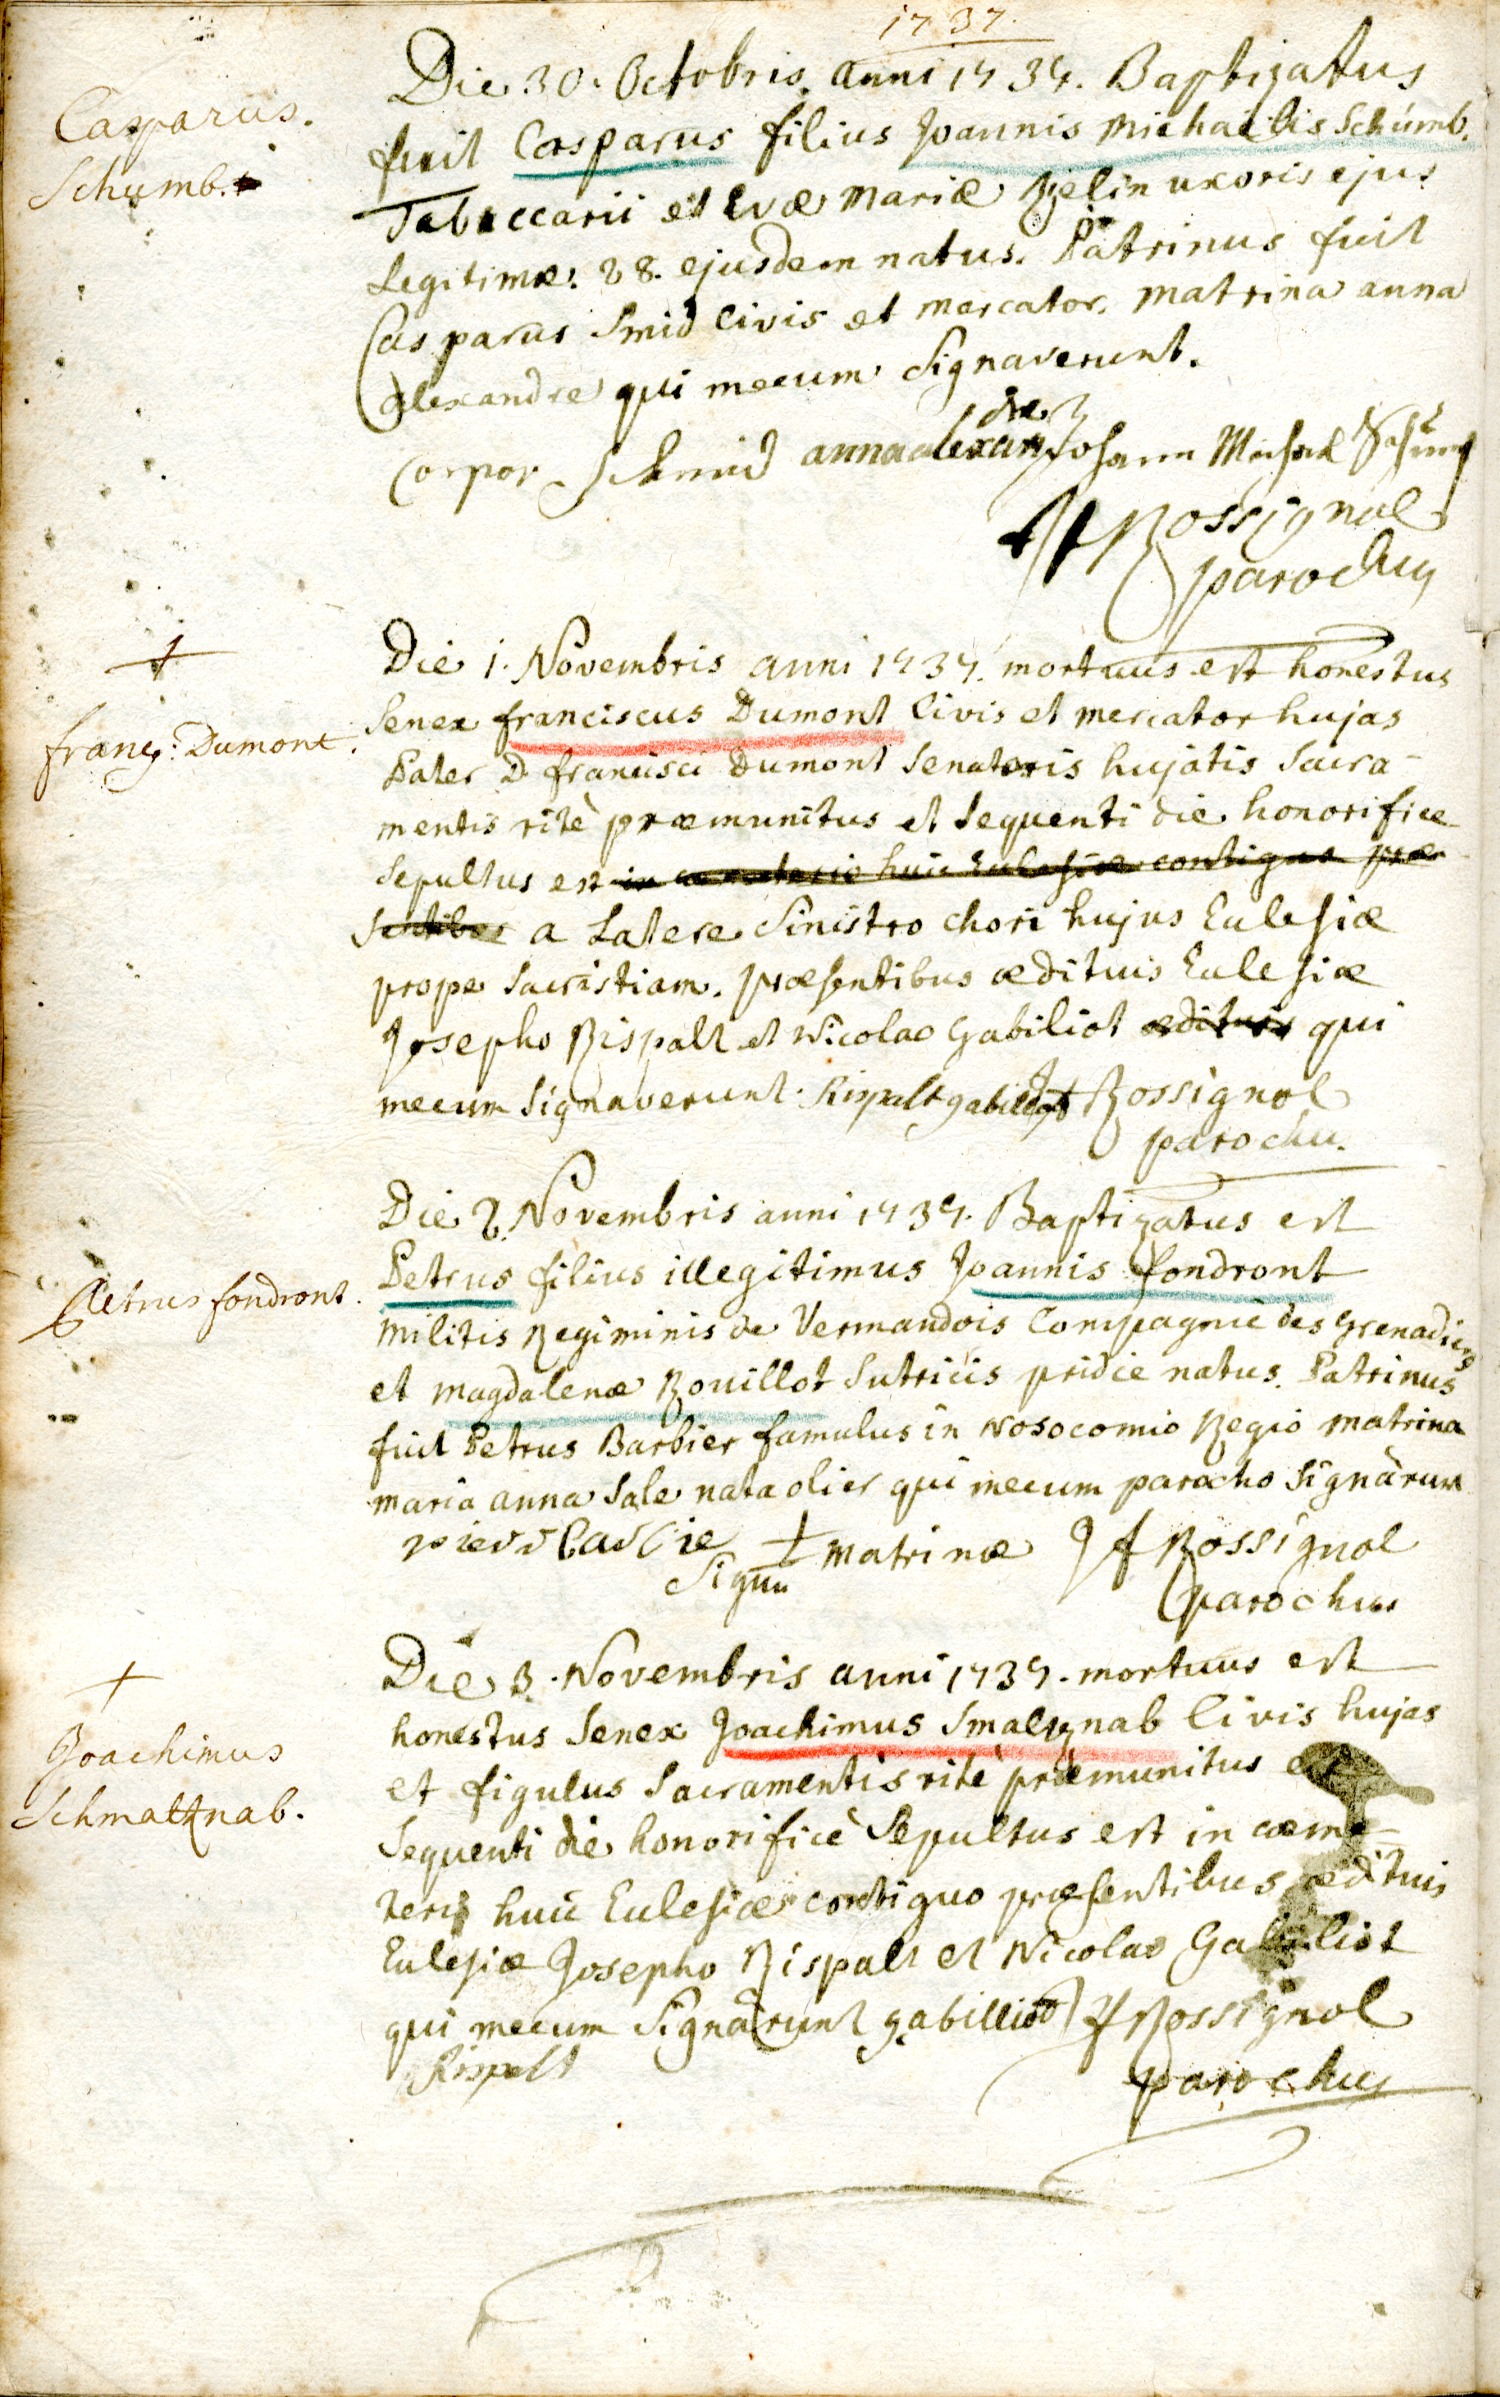 1737.
Casparus.
Schumb.
Die 30. Octobris. anni 1737. Baptizatus
fuit Casparus filius Joannis Michaelis Schümb.
Tabaccarii et Evæ Mariæ Zelin uxoris ejus
Legitimæ. 28. ejusdem natus. Patrinus fuit
Casparus Smid Civis et Mercator. Matrina anna
Alexandre qui mecum Signaverunt.
Corpor Schmid anna alexandre Johann Michael Schümb
JF Rossignol
parochus
+
franc: Dumont.
Die 1. Novembris anni 1737. mortuus est honestus
Senex franciscus Dumont Civis et mercator hujas
Pater D. francisci Dumont Senatoris hujatis Sacra-
mentis ritè præmunitus et Sequenti die honorifice
Sepultus est in cæmeterio huic Eclesiæ contiguo præ
sentibus a Latere Sinistro chori hujus Eclesiæ
prope Sacristiam. Præsentibus ædituis Eclesiæ
Josepho Rispalt et Nicolao Gabiliot ædituis qui
mecum Signaverunt. Rispalt gabilliot JF Rossignol
parochu.
Petrus fondront.
Die 2. Novembris anni 1737. Baptizatus est
Petrus filius illegitimus Joannis fondront
Militis Regiminis de Vermandois Compagnie des Grenadiers
et Magdalenæ Rouillot Sutricis pridie natus. Patrinus
fuit Petrus Barbier famulus in Nosocomio Regio Matrina
Maria anna Sale nata olier qui mecum parocho Signârunt
+ Matrinæ JF Rossignol
Signu
parochus
+
Joachimus
Schmaltznab.
Die 3. Novembris anni 1737. mortuus est
honestus Senex Joachimus Smalznab Civis hujas
et figulus Sacramentis ritè præmunitus et
Sequenti die honorificè Sepultus est in cæme-
terio huic Eclesiæ contiguo præsentibus ædituis
Eclesiæ Josepho Rispalt et Nicolao Gabiliot
qui mecum Signârunt gabilliot JF Rossignol
Rispalt
parochus